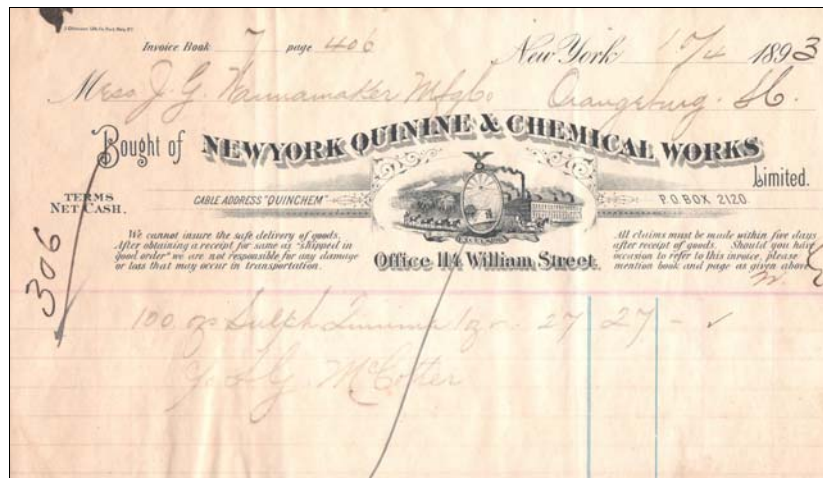 Invoice Book 7 page 406
New York 10/4 1893
Mess. J. G. Wannamaker Mfg Co. Orangeburg. S.C.
Bought of NEW YORK QUININE & CHEMICAL WORKS
Limited.
TERMS
NET CASH.
CABLE ADDRESS "QUINCHEM"
P.O. BOX 2120.
We cannot insure the safe delivery of goods.
After obtaining a receipt for same as "shipped in
good order" we are not responsible for any damage
or loss that may occur in transportation.
Office 114 William Street.
All claims must be made within five days
after receipt of goods. Should you have
occasion to refer to this invoice, please
mention book and page as given above
306
100 oz Sulph 27 27 - ✓
McCotter